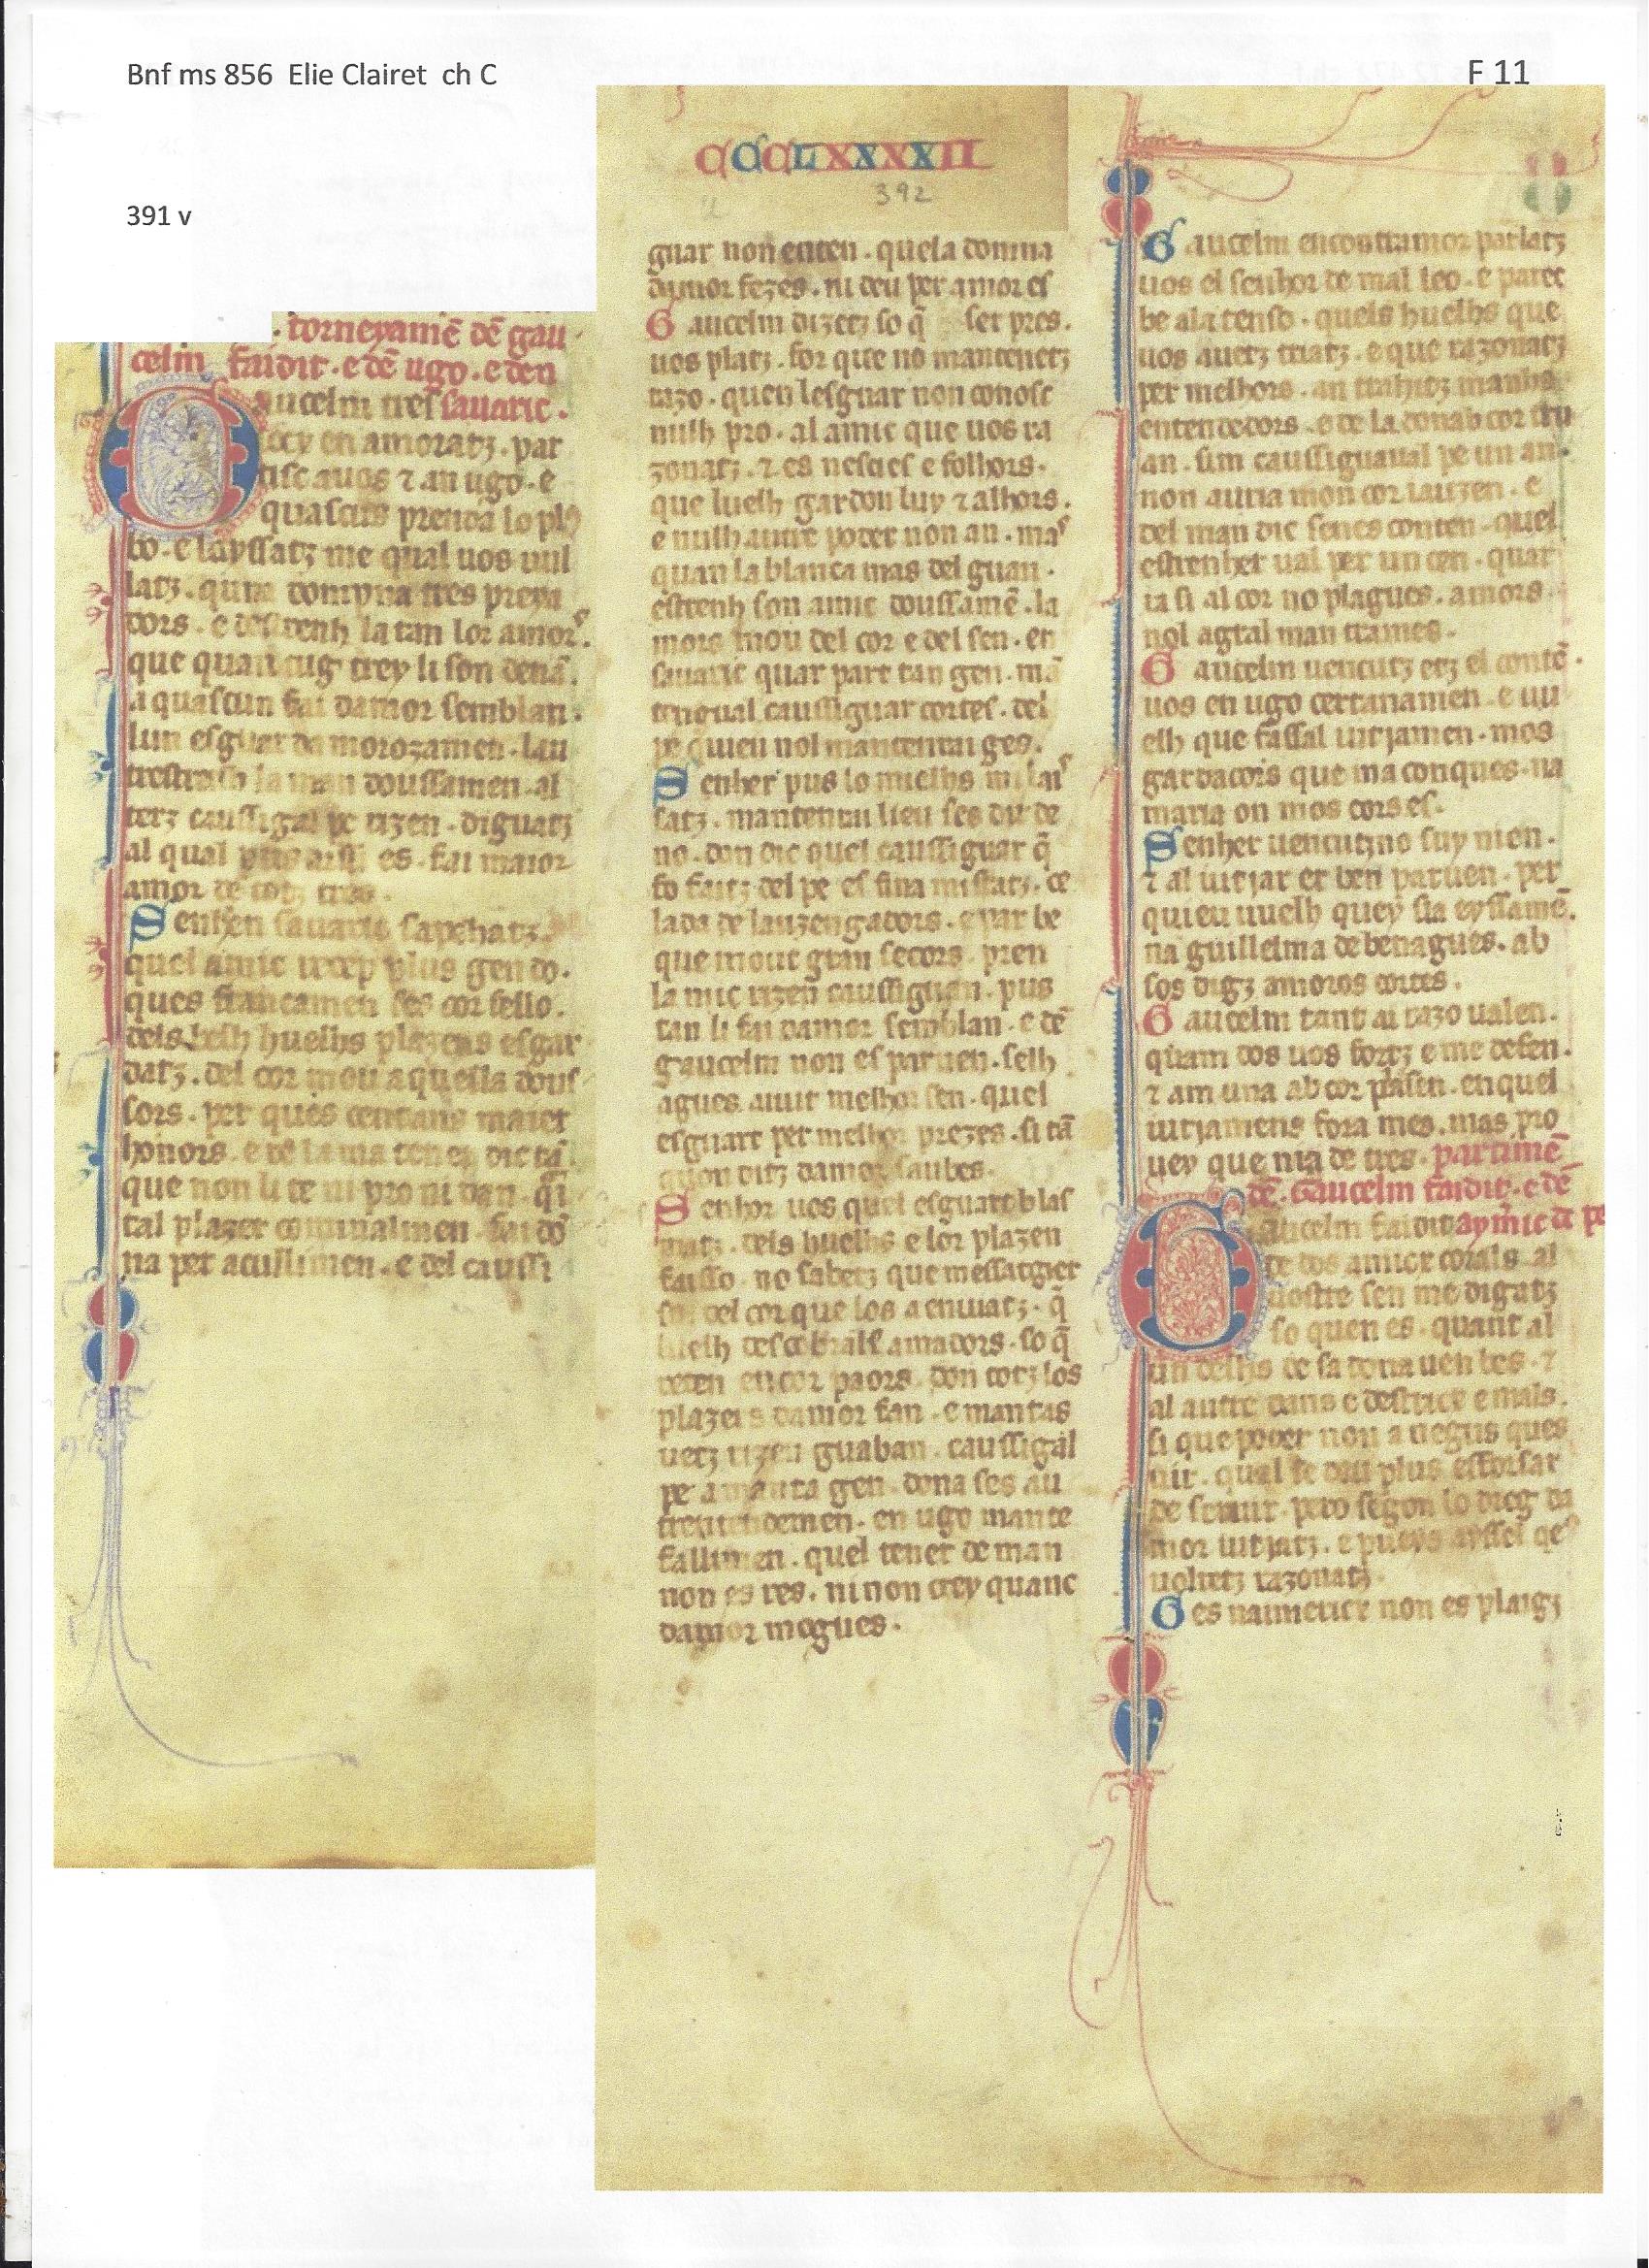 Bnf ms 856 Elie Clairet ch C
F 11
391 v
. torneyamē dē gau
celm faidit . e dē ugo . e den
aucelm tres sauaric .
iocx en amoratz . par
tisc auos ⁊ an ugo . e
quascus prenda lo pl9
bo . e layssatz me qual uos uul
latz . quna dompna tres preya
dors . e destrenh la tan lor amors .
que quan tug trey li son denā .
a quascun fai damor semblan .
lun esguarda morozamen . lau
trestrenh la man doussamen . al
terz caussigal pe rizen . diguatz
al qual pus aissi es . fai maior
amor de totz tres .
Senhen sauaric sapchatz .
quel amic recep plus gen do .
ques francamen ses cor fello .
dels belh huelhs plazens esgar
datz . del cor mou aquella dous
sors . per ques centans maier
honors . e de la ma tener dic tā .
que non li te ni pro ni dan . q̄i
tal plazer cominalmen . fai dō
na per acullimen . e del caussi
CCCLXXXXII
392
guar non enten . que la domna
damor fezes . ni deu per amor es
Gaucelm dizetz so q̄ ser pres .
uos platz . for que no mantenetz
razo . quen lesguar non conosc
nulh pro . al amic que uos ra
zonatz . ⁊ es nescies e folhors .
que luelh gardon luy ⁊ alhors .
e nulh autre poder non an . mas
quan la blanca mas del guan .
estrenh son amic doussamē . la
mors mou del cor e del sen . en
sauaric quar part tan gen . mā
tengual caussiguar cortes . del
pe quieu nol mantenrai ges .
Senher pus lo mielhs mi lais
satz . mantenrai lieu ses dir de
no . don dic quel caussiguar q̄
fo faitz del pe es fina mistatz . ce
lada de lauzengadors . e par be
que mout gran secors pren
la mic rizen caussiguan . pus
tan li fai damor semblan . e dē
gaucelm non es paruen . selh
agues auut melhor sen . quel
esguart per melhor prezes . si tā
quon ditz damor saubes .
Senhor uos quel esguart blas
matz . dels huelhs e lor plazen
faisso . no sabetz que messatgier
so del cor que los a enuiatz . q̄
huelh descobrals amadors . so q̄
reten en cor paors . don totz los
plazers damor fan . e mantas
uetz rizen guaban . caussigal
pe a manta gen . dona ses au
trentendemen . en ugo mante
fallimen . quel tener de man
non es res . ni non crey quanc
damor mogues .
Gaucelm encontramor parlatz
uos el senhor de mal leo . e parec
be ala tenso . quels huelhs que
uos auetz triatz . e que razonatz
per melhors . an trahitz manhs
entendedors . e de la donab cor tru
an . sim caussiguaual pe un an .
non auria mon cor iauzen . e
del man dic senes conten . quel
estrenher ual per un cen . quar
ia si al cor no plagues . amors
nol agral man trames .
Gaucelm uencutz etz el contē .
uos en ugo certanamen . e uu
elh que fassal iutjamen . mos
gardacors que ma conques . na
maria on mos cors es .
Senher uencutz no suy nien .
⁊ al iutjar er ben paruen . per
quieu uuelh quey sia eyssamē .
na guillelma de benagues . ab
sos digz amoros cortes .
Gaucelm tant ai razo ualen .
quam dos uos fortz e me defen .
⁊ am una ab cor plasen . en quel
iutjamens fora mes . mas pro
uey que nia de tres . partimē
dē . Gaucelm faidit . e dē
aucelm faidit aymeric de pe
de dos amicx corals al
uostre sen me digatz
so quen es . quant al
un delhs de sa dona uen bes . ⁊
al autre dans e destricx e mals .
si que poder non a negus ques
uir . qual se deu plus esforsar
de seruir . pero segon lo dreg da
mor iutjatz . e pueys ayssel qes
uolretz razonatz .
Ges naimericx non es plaigz